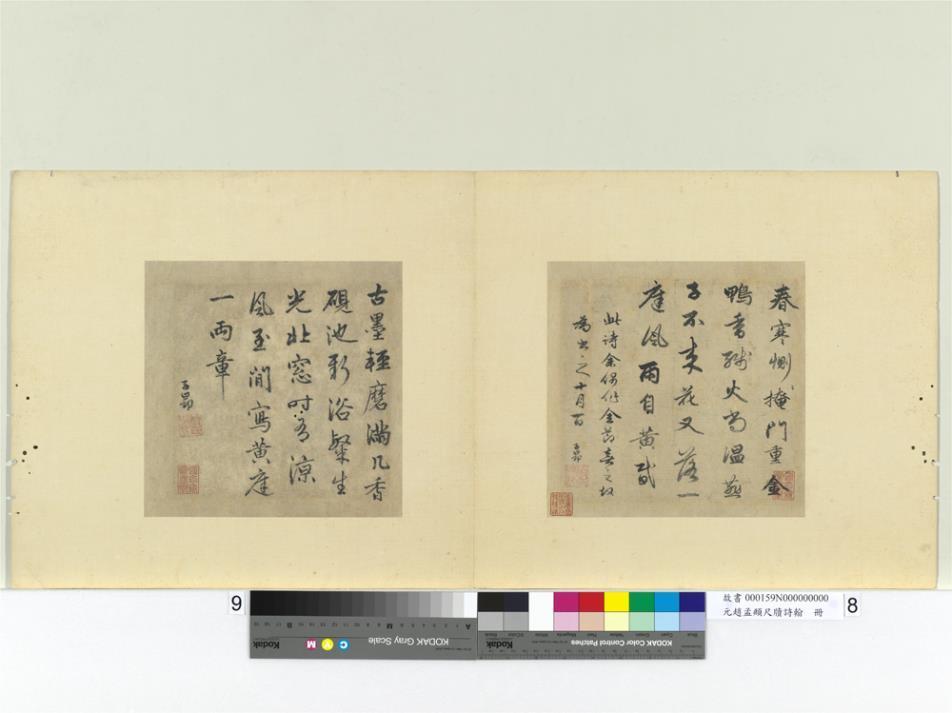 春寒惻〻掩門重金
鴨香殘火尚溫燕
子不来花又落一
庭風雨自黃昏
此詩余偶作金喜之故
為書之十月百
子昂
古墨輕磨滿几香
硯池新浴粲生
光北窓时有涼
風至閒寫黄庭
一兩章
子昂
9
8
故書 000159N000000000
元趙孟頫尺牘詩翰 冊
KODAK Gray Scale
C Y M
Kodak
KODAK Color Control Patches
Kodak